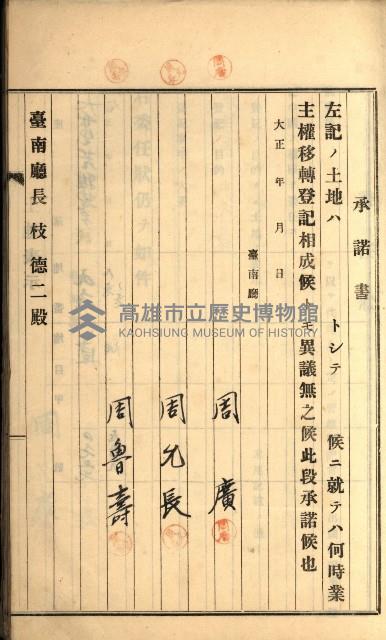 承諾書
左記ノ土地ハ　トシテ　候ニ就テハ何時業
主權移轉登記相成候トモ異議無之候此段承諾候也
大正　年　月　日
臺南廳
周廣
周允長
周魯壽
臺南廳長枝德二殿
高雄市立歷史博物館
KAOHSIUNG MUSEUM OF HISTORY